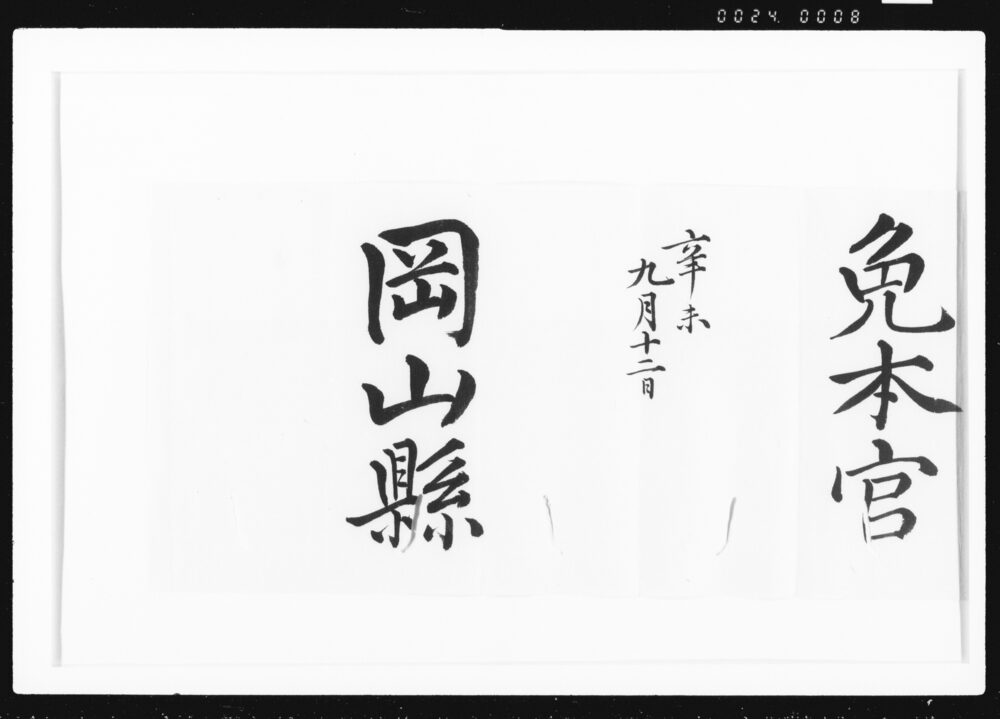 0024. 0008
免本官
辛未
九月十二日
岡山縣